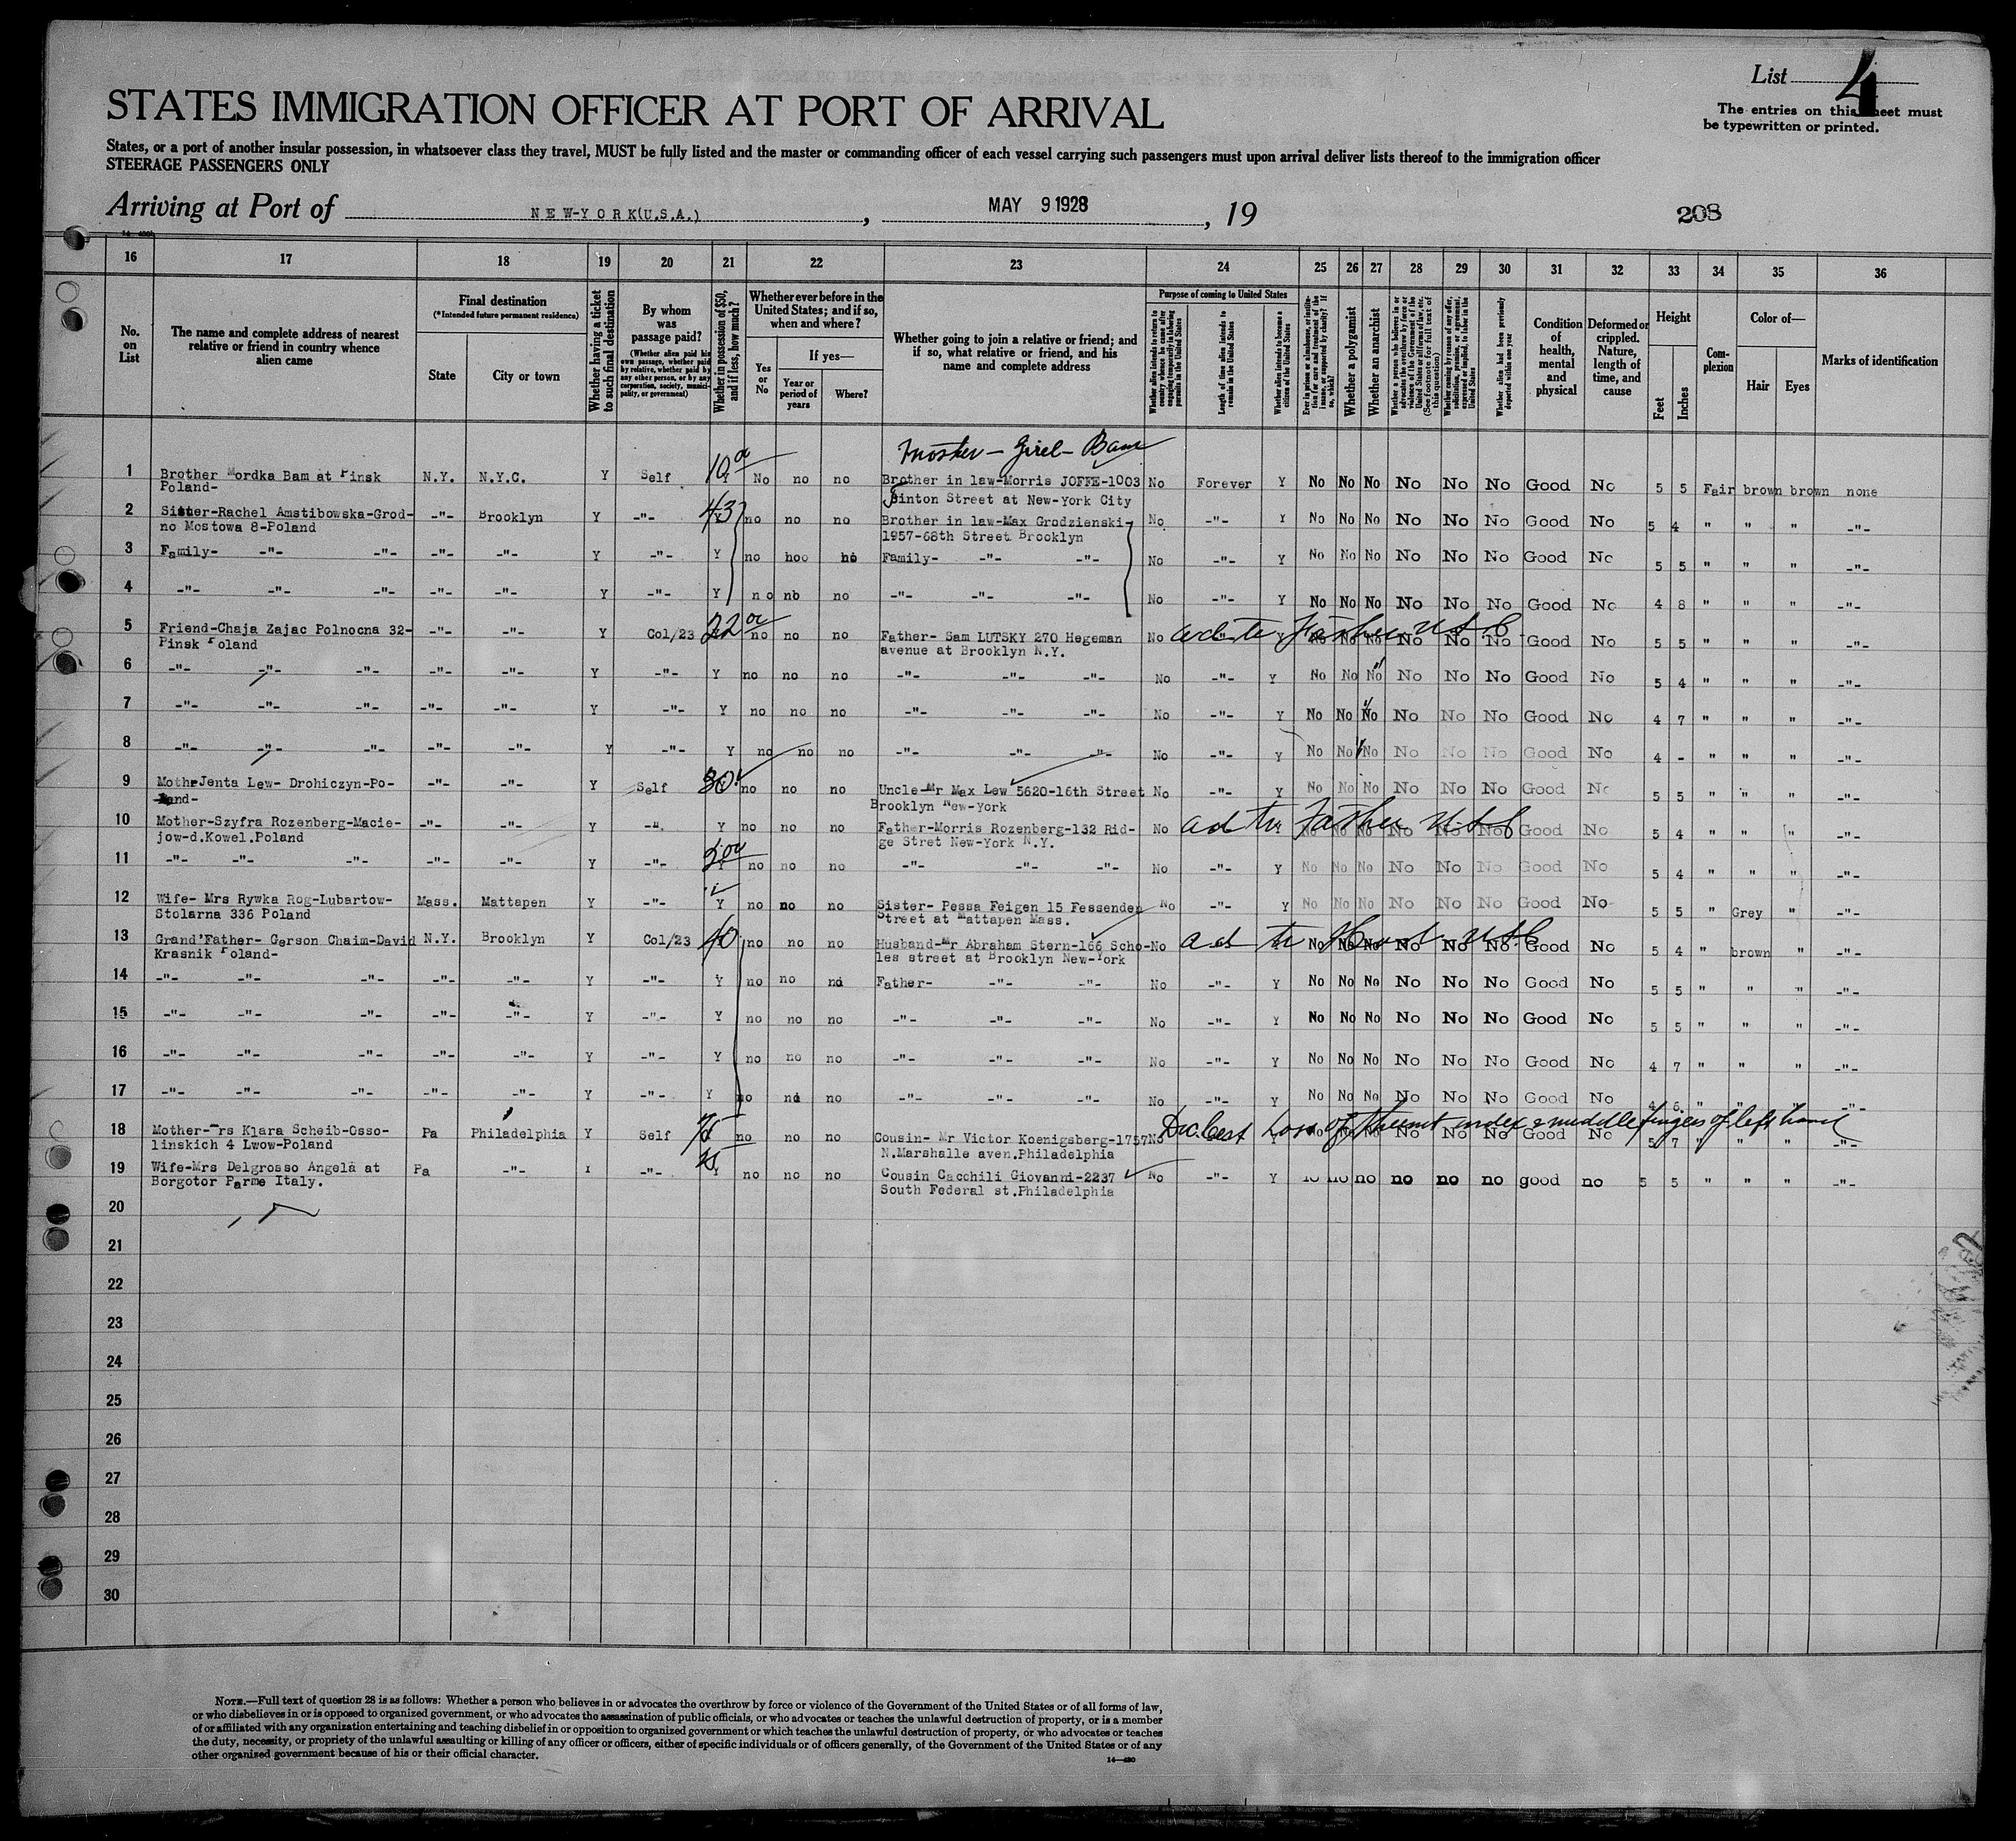 List 4
The entries on this sheet must
be typewritten or printed.
STATES IMMIGRATION OFFICER AT PORT OF ARRIVAL
States, or a port of another insular possession, in whatsoever class they travel, MUST be fully listed and the master or commanding officer of each vessel carrying such passengers must upon arrival deliver lists thereof to the immigration officer
STEERAGE PASSENGERS ONLY
Arriving at Port of NEW-YORK(U.S.A.), MAY 9 1928, 19
208
16 17 18 19 20 21 22 23 24 25 26 27 28 29 30 31 32 33 34 35 36
No. on List
The name and complete address of nearest relative or friend in country whence alien came
Final destination
(*Intended future permanent residence)
State
City or town
Whether having a ticket to such final destination
By whom was passage paid?
(Whether alien paid his own passage, whether paid by relative, whether paid by any other person, or by any corporation, society, municipality, or government)
Whether in possession of $50, and if less, how much?
Whether ever before in the United States; and if so, when and where?
Yes or No
If yes—
Year or period of years
Where?
Whether going to join a relative or friend; and if so, what relative or friend, and his name and complete address
Purpose of coming to United States
Whether alien intends to return to country whence he came after engaging temporarily in laboring pursuits in the United States
Length of time alien intends to remain in the United States
Whether alien intends to become a citizen of the United States
Ever in prison or almshouse, or institution for care and treatment of the insane, or supported by charity? If so, which?
Whether a polygamist
Whether an anarchist
Whether a person who believes in or advocates the overthrow by force or violence of the Government of the United States or all forms of law, etc. (See footnote for full text of this question)
Whether coming by reason of any offer, solicitation, promise, or agreement, expressed or implied, to labor in the United States
Whether alien had been previously deported within one year
Condition of health, mental and physical
Deformed or crippled. Nature, length of time, and cause
Height
Feet
Inches
Complexion
Color of—
Hair
Eyes
Marks of identification
Moster - Girel - Bam
1 Brother Mordka Bam at Pinsk N.Y. N.Y.C. Y Self 10 Y No no no Brother in law-Morris JOFFE-1003 No Forever Y No No No No No No Good No 5 5 Fair brown brown none
Poland- Street at New-York City
2 Sister-Rachel Amstibowska-Grod- -"- Brooklyn Y -"- 43 no no no Brother in law-Max Grodzienski- No -"- Y No No No No No No Good No 5 4 " " " -"-
no Mostowa 8-Poland 1957-68th Street Brooklyn
3 Family- -"- -"- -"- -"- Y -"- Y no hoo no Family- -"- -"- No -"- Y No No No No No No Good No 5 5 " " " -"-
4 -"- -"- -"- -"- -"- Y -"- Y no nb no -"- -"- -"- No -"- Y No No No No No No Good No 4 8 " " " -"-
5 Friend-Chaja Zajac Polnocna 32- -"- -"- Y Col/23 22 no no no Father- Sam LUTSKY 270 Hegeman No -"- Y No No No No No No Good No 5 5 " " " -"-
Pinsk Poland avenue at Brooklyn N.Y.
ad to Father USC
6 -"- -"- -"- -"- -"- Y -"- Y no no no -"- -"- -"- No -"- Y No No No No No No Good No 5 4 " " " -"-
7 -"- -"- -"- -"- -"- Y -"- Y no no no -"- -"- -"- No -"- Y No No No No No No Good No 4 7 " " " -"-
8 -"- -"- -"- -"- -"- Y -"- Y no no no -"- -"- -"- No -"- Y No No No No No No Good No 4 - " " " -"-
9 Mothr Jenta Lew- Drohiczyn-Po- -"- -"- Y Self 30 no no no Uncle-Mr Max Lew 5620-16th Street No -"- Y No No No No No No Good No 5 5 " " " -"-
land- Brooklyn New-York
10 Mother-Szyfra Rozenberg-Macie- -"- -"- Y -"- Y no no no Father-Morris Rozenberg-132 Rid- No No No No No No No Good No 5 4 " " " -"-
jow-d.Kowel.Poland ge Stret New-York N.Y.
ad to Father USC
11 -"- -"- -"- -"- -"- Y -"- no no no -"- -"- -"- No -"- Y No No No No No No Good No 5 4 " " " -"-
12 Wife- Mrs Rywka Rog-Lubartow- Mass. Mattapen Y -"- Y no no no Sister- Pessa Feigen 15 Fessenden No -"- Y No No No No No No Good No 5 5 " Grey " -"-
Stolarna 336 Poland Street at Mattapen Mass.
13 Grand'Father- Gerson Chaim-David N.Y. Brooklyn Y Col/23 40 no no no Husband-Mr Abraham Stern-166 Scho- No No No No No No No Good No 5 4 " brown " -"-
Krasnik Poland- les street at Brooklyn New-York
ad to Husb. USC
14 -"- -"- -"- -"- -"- Y -"- Y no no no Father- -"- -"- No -"- Y No No No No No No Good No 5 5 " " " -"-
15 -"- -"- -"- -"- -"- Y -"- Y no no no -"- -"- -"- No -"- Y No No No No No No Good No 5 5 " " " -"-
16 -"- -"- -"- -"- -"- Y -"- Y no no no -"- -"- -"- No -"- Y No No No No No No Good No 4 7 " " " -"-
17 -"- -"- -"- -"- -"- Y -"- Y no no no -"- -"- -"- No -"- Y No No No No No No Good No 4 6 " " " -"-
18 Mother-Mrs Klara Scheib-Osso- Pa Philadelphia Y Self no no no Cousin- Mr Victor Koenigsberg-1757 No Y No No No No No No Good No 5 7 " " " -"-
linskich 4 Lwow-Poland N.Marshalle aven.Philadelphia
Loss of thumb index & middle fingers of left hand
19 Wife-Mrs Delgrosso Angela at Pa -"- -"- no no no Cousin Cacchili Giovanni-2237 No -"- Y no no no no no good no 5 5 " " " -"-
Borgotor Parme Italy. South Federal st.Philadelphia
20
21
22
23
24
25
26
27
28
29
30
NOTE.—Full text of question 28 is as follows: Whether a person who believes in or advocates the overthrow by force or violence of the Government of the United States or of all forms of law,
or who disbelieves in or is opposed to organized government, or who advocates the assassination of public officials, or who advocates or teaches the unlawful destruction of property, or is a member
of or affiliated with any organization entertaining and teaching disbelief in or opposition to organized government or which teaches the unlawful destruction of property, or who advocates or teaches
the duty, necessity, or propriety of the unlawful assaulting or killing of any officer or officers, either of specific individuals or of officers generally, of the Government of the United States or of any
other organized government because of his or their official character.
14—430